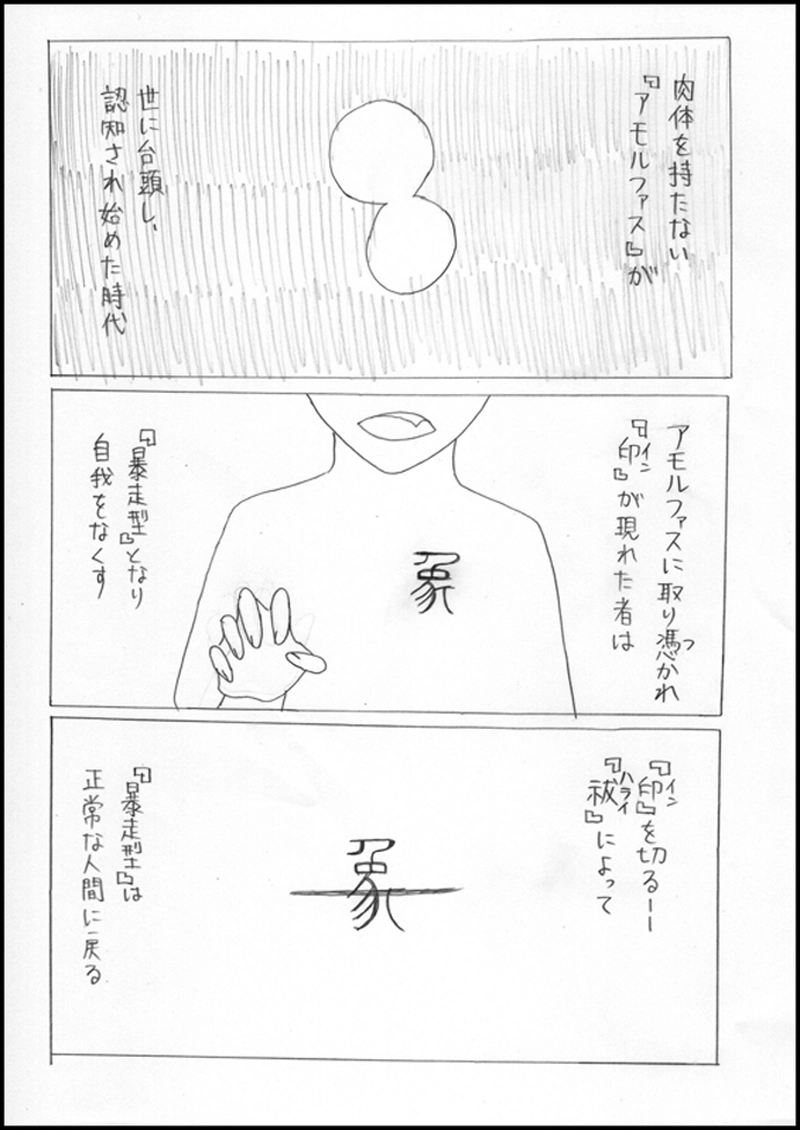 肉体を持たない
『アモルファス』が
世に台頭し、
認知され始めた時代
アモルファスに取り憑かれ
ツ
『印』が現れた者は
イン
『暴走型』となり
自我をなくす
『印』を切るーー
イン
『祓』によって
ハライ
『暴走型』は
正常な人間に戻る